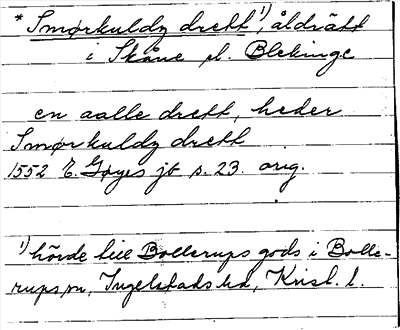 * Smørkuldz drett ¹), åldrätt
i Skåne el. Blekinge
en aalle drett, heder
Smørkuldz drett
1552 E. Gøyes jb s. 23. orig.
¹) hörde till Bollerups gods i Bolle-
rups sn, Ingelstads hd, Krist. l.